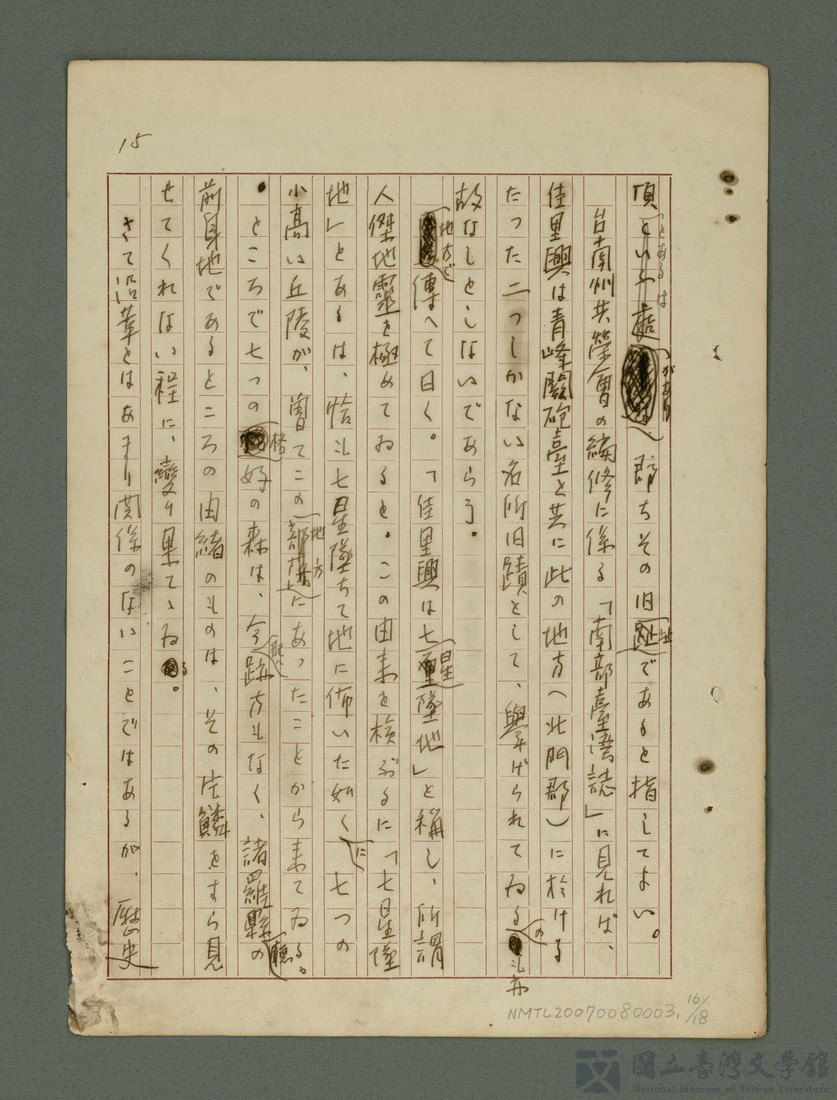 15
頂といふ處があり(とあるは)、郡ちその旧趾(址)であると指してよい。
台南州共榮會の編修に係る「南部臺湾誌」に見れば、
佳里興は青峰闕砲臺と共に此の地方(北門郡)に於ける
たった二つしかない名所旧蹟として、擧げられてゐるのも亦
故なしとしないであらう。
地方で傳へて曰く。「佳里興は七星墜地」と稱し、所謂
人傑地靈を極めてゐると。この由来を検ぶるに「七星墜
地」とあるは、恰も七星墜ちて地に佈いた如くに七つの
小高い丘陵が、曽てこの地方にあったことから来てゐる。
ところで七つの恰好の森は、今跡方もなく、諸羅縣廳の
前身地であるところの由緒のものは、その片鱗をすら見
せてくれない程に、變り果てゝゐる。
さて沿革とはあまり関係のないことではあるが、歴史
NMTL20070080003, 16/18
國立臺灣文學館
National Museum of Taiwan Literature